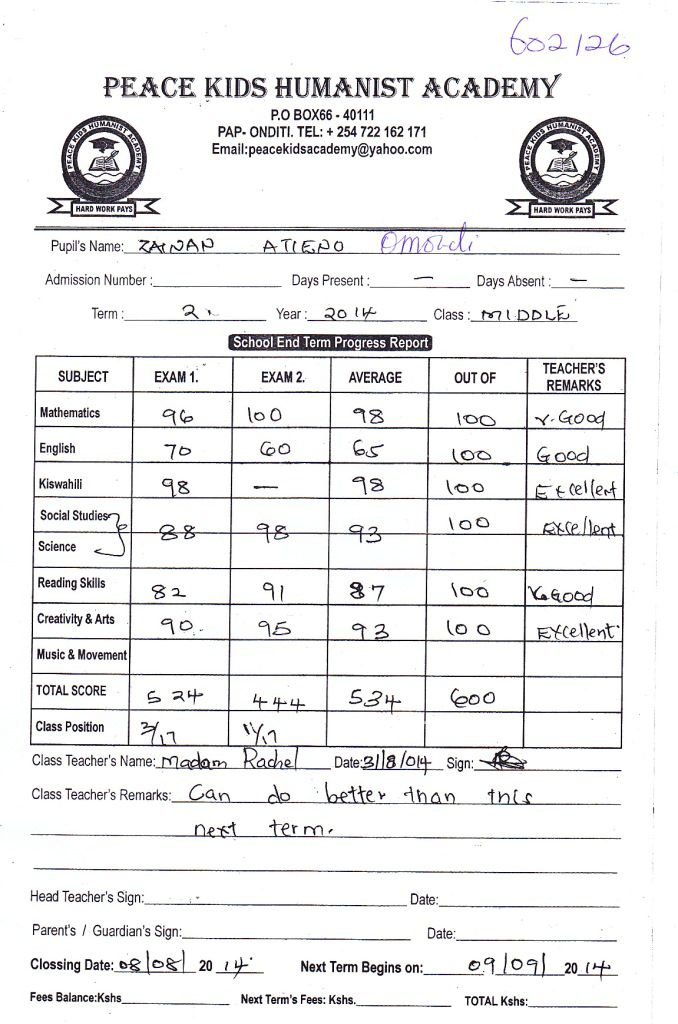 602126
PEACE KIDS HUMANIST ACADEMY
P.O BOX66 - 40111
PAP- ONDITI. TEL: + 254 722 162 171
Email:peacekidsacademy@yahoo.com
PEACE KIDS HUMANIST ACADEMY
HARD WORK PAYS
PEACE KIDS HUMANIST ACADEMY
HARD WORK PAYS
Pupil's Name: ZAINAN ATIENO Omondi
Admission Number : Days Present : — Days Absent : —
Term : 2. Year : 2014 Class : MIDDLE
School End Term Progress Report
SUBJECT EXAM 1. EXAM 2. AVERAGE OUT OF TEACHER'S REMARKS
Mathematics 96 100 98 100 v. Good
English 70 60 65 100 Good
Kiswahili 98 — 98 100 Excellent
Social Studies 88 98 93 100 Excellent
Science
Reading Skills 82 91 87 100 V. Good
Creativity & Arts 90. 95 93 100 Excellent
Music & Movement
TOTAL SCORE 524 444 534 600
Class Position 3/17 11/17
Class Teacher's Name: Madam Rachel Date: 31/8/014 Sign:
Class Teacher's Remarks: Can do better than this
next term.
Head Teacher's Sign: Date:
Parent's / Guardian's Sign: Date:
Clossing Date: 08/08/ 20 14 Next Term Begins on: 09/09/ 20 14
Fees Balance:Kshs Next Term's Fees: Kshs. TOTAL Kshs: